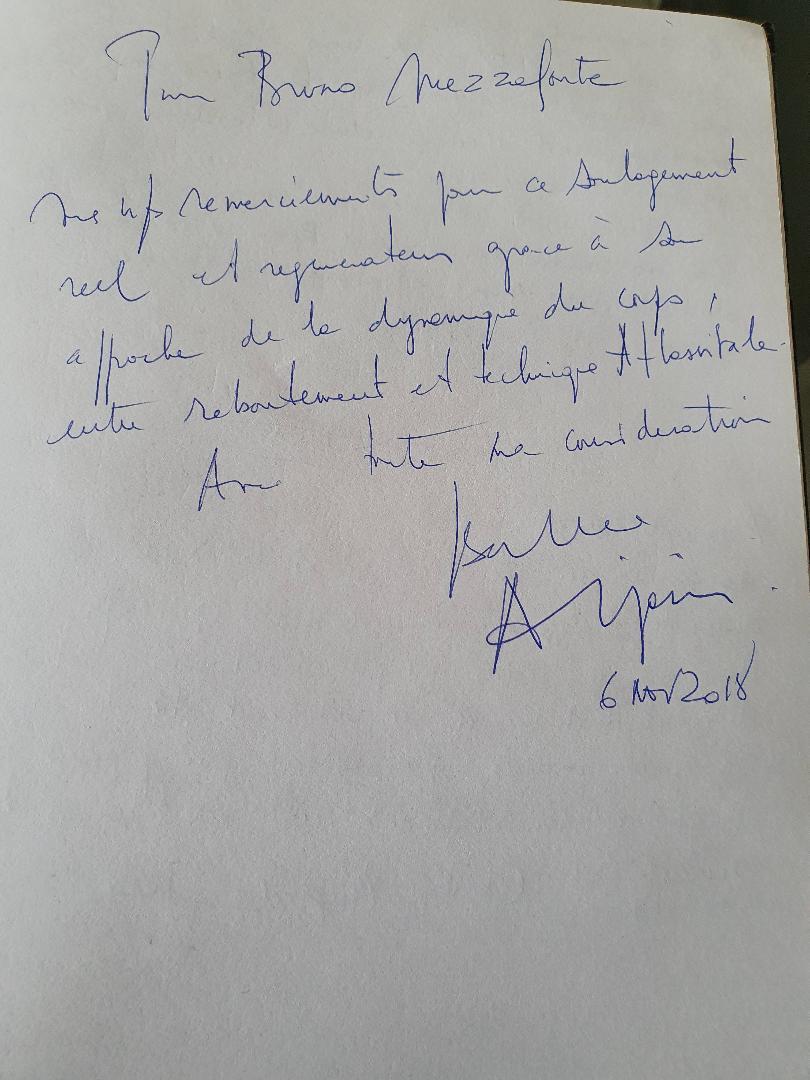 Pour Bruno Mezzaforte
mes vifs remerciements pour ce soulagement
reel et regenerateur grace à son
approche de la dynamique du corps,
entre reboutement et technique
Avec toute ma consideration
6 Nov 2018